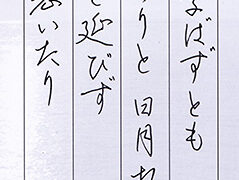 ばずとも
りと 日月
延びず
いたり